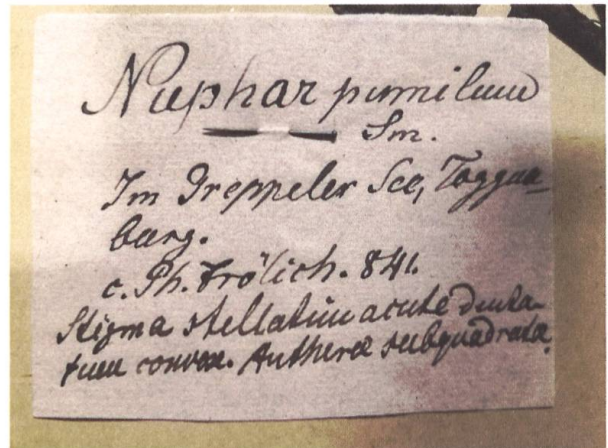 Nuphar pumilum
Sm.
Im Greppeler See, Toggen=
burg.
c. Ph. Frölich. 841.
Stigma stellatum acute denta-
tum convex. Antheræ subquadratæ.